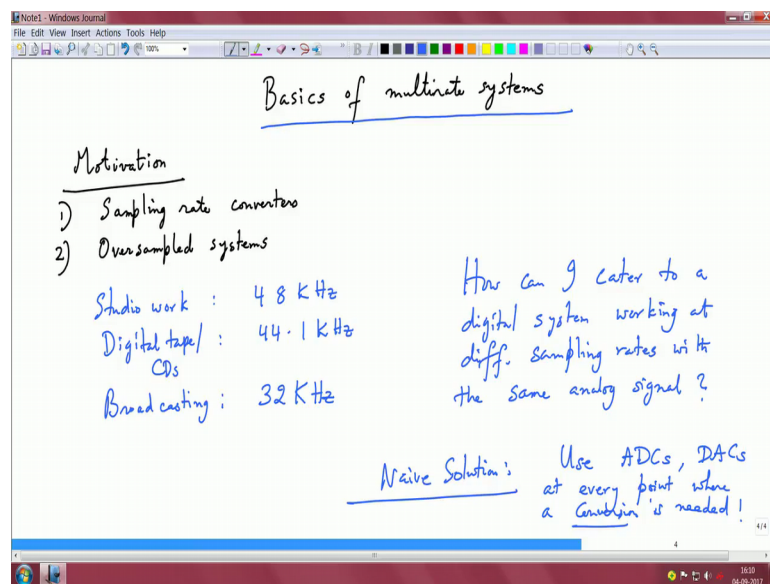 Note1 - Windows Journal
File Edit View Insert Actions Tools Help
100%
B I
Basics of multirate systems
Motivation
1) Sampling rate converters
2) Oversampled systems
Studio work : 48 KHz
Digital tape/ : 44.1 KHz
CDs
Broadcasting : 32 KHz
How can I cater to a
digital system working at
diff. sampling rates with
the same analog signal ?
Naive Solution : Use ADCs, DACs
at every point where
a conversion is needed !
4/4
4
16:10
04-09-2017